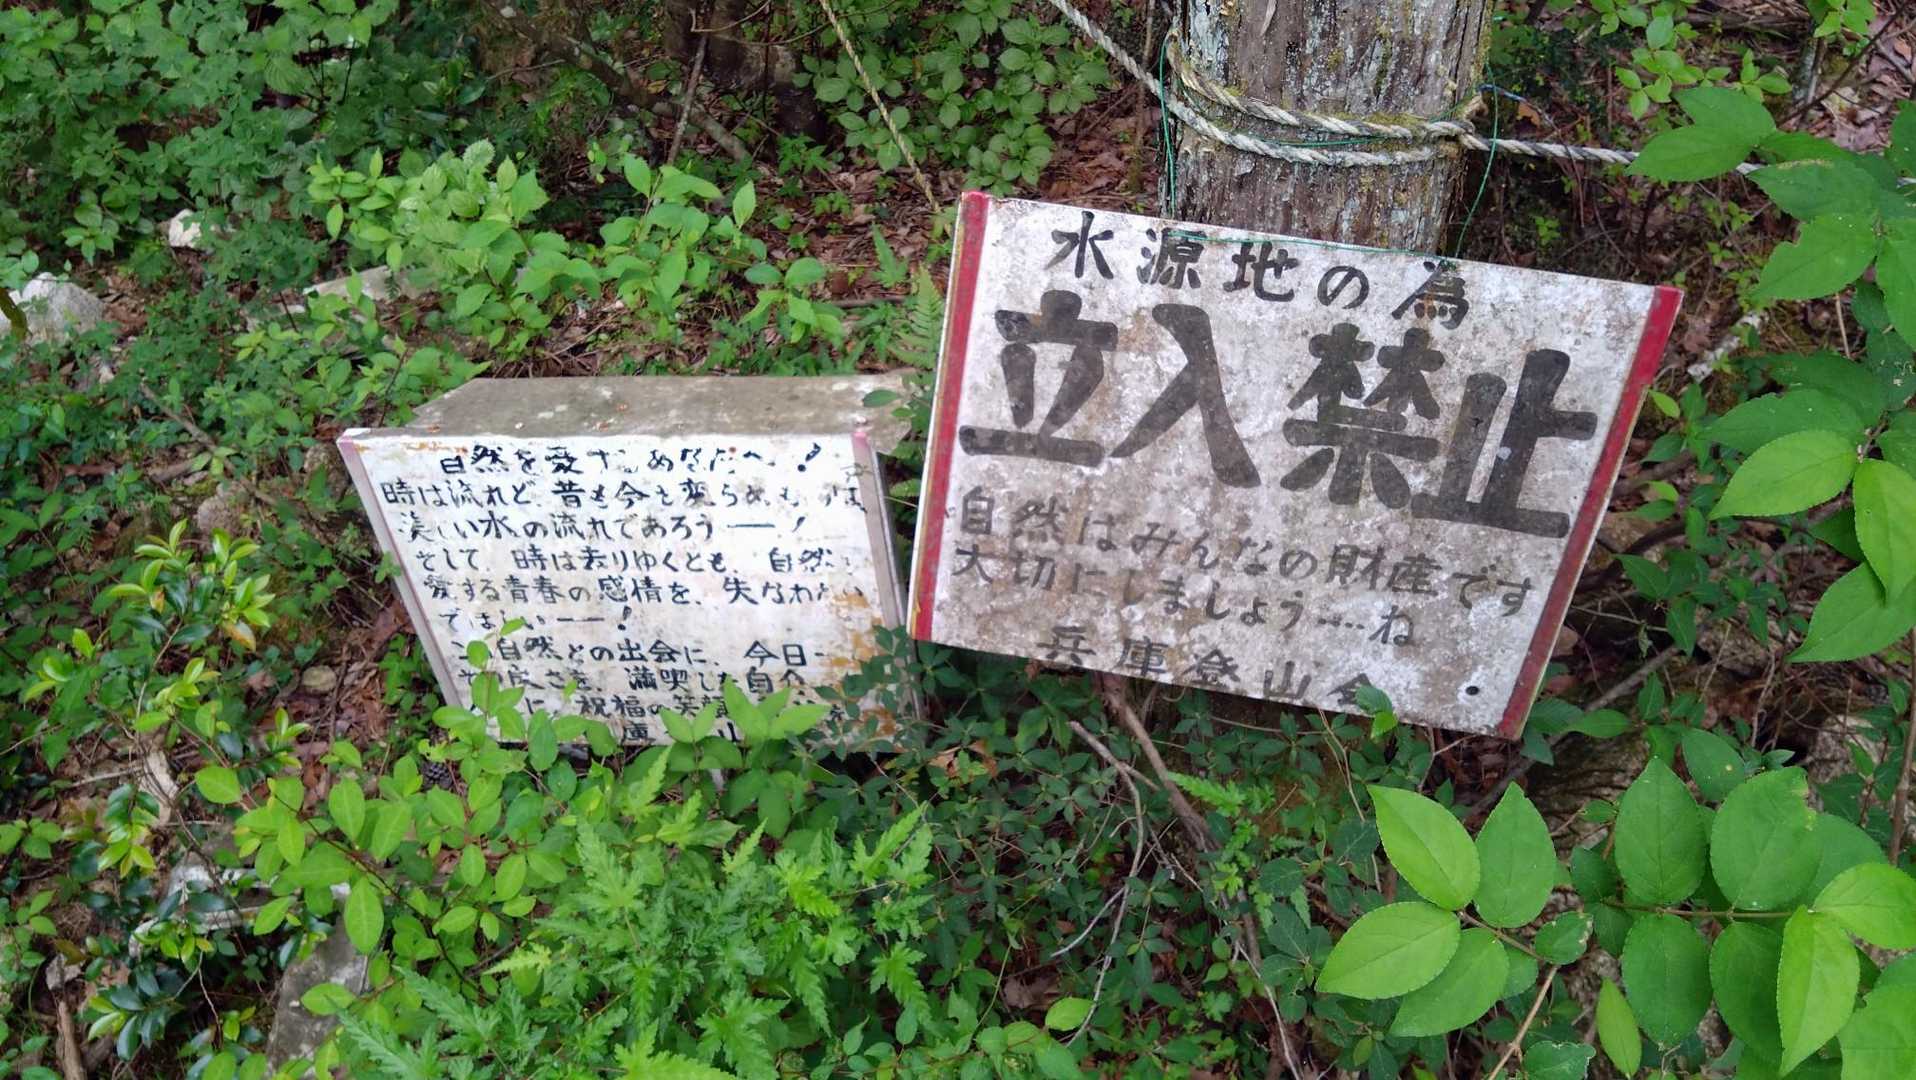 自然を愛するあなたへ!
時は流れど、昔も今も変らぬものは、
美しい水の流れであろう――!
そして、時は去りゆくとも、自然を
愛する青春の感情を、失なわない
でほしい――!
自然との出会に、今日一
良さを、満喫した自分
に、祝福の笑顔
庫 山
水源地の為
立入禁止
自然はみんなの財産です
大切にしましょう……ね
兵庫登山会